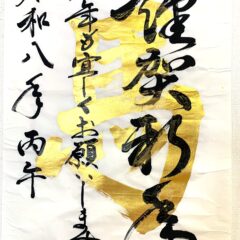 謹賀新春
年も宜しくお願いします
令和八年 丙午